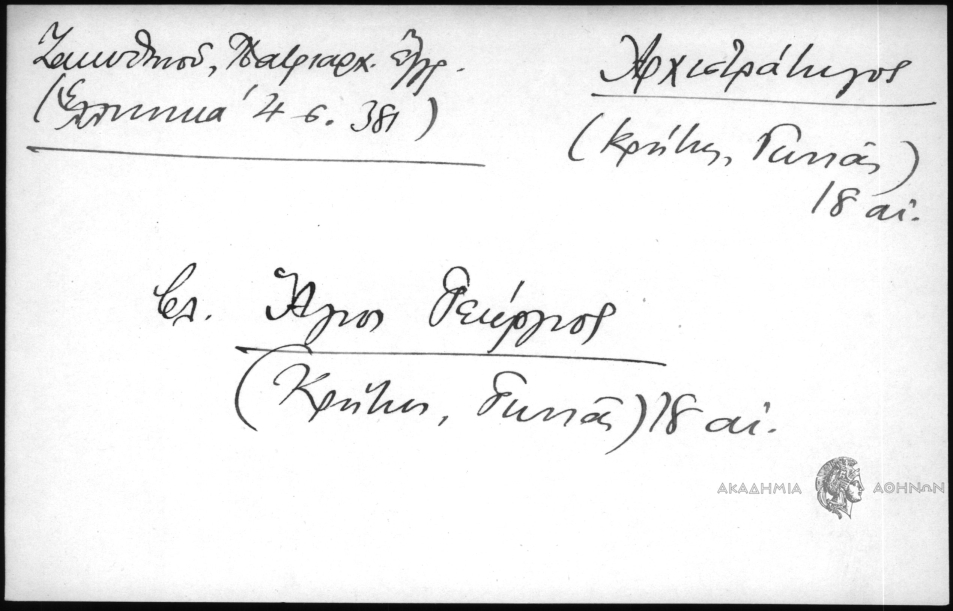 Ζακυθηνοῦ, Πατριαρχ. ἔγγρ.
(Ἑλληνικά 4 σ. 381)
Ἀρχιστράτηγος
(Κρήτης, Γωνιᾶς)
18 αἰ.
βλ. Ἅγιος Γεώργιος
(Κρήτης, Γωνιᾶς) 18 αἰ.
ΑΚΑΔΗΜΙΑ ΑΘΗΝΩΝ